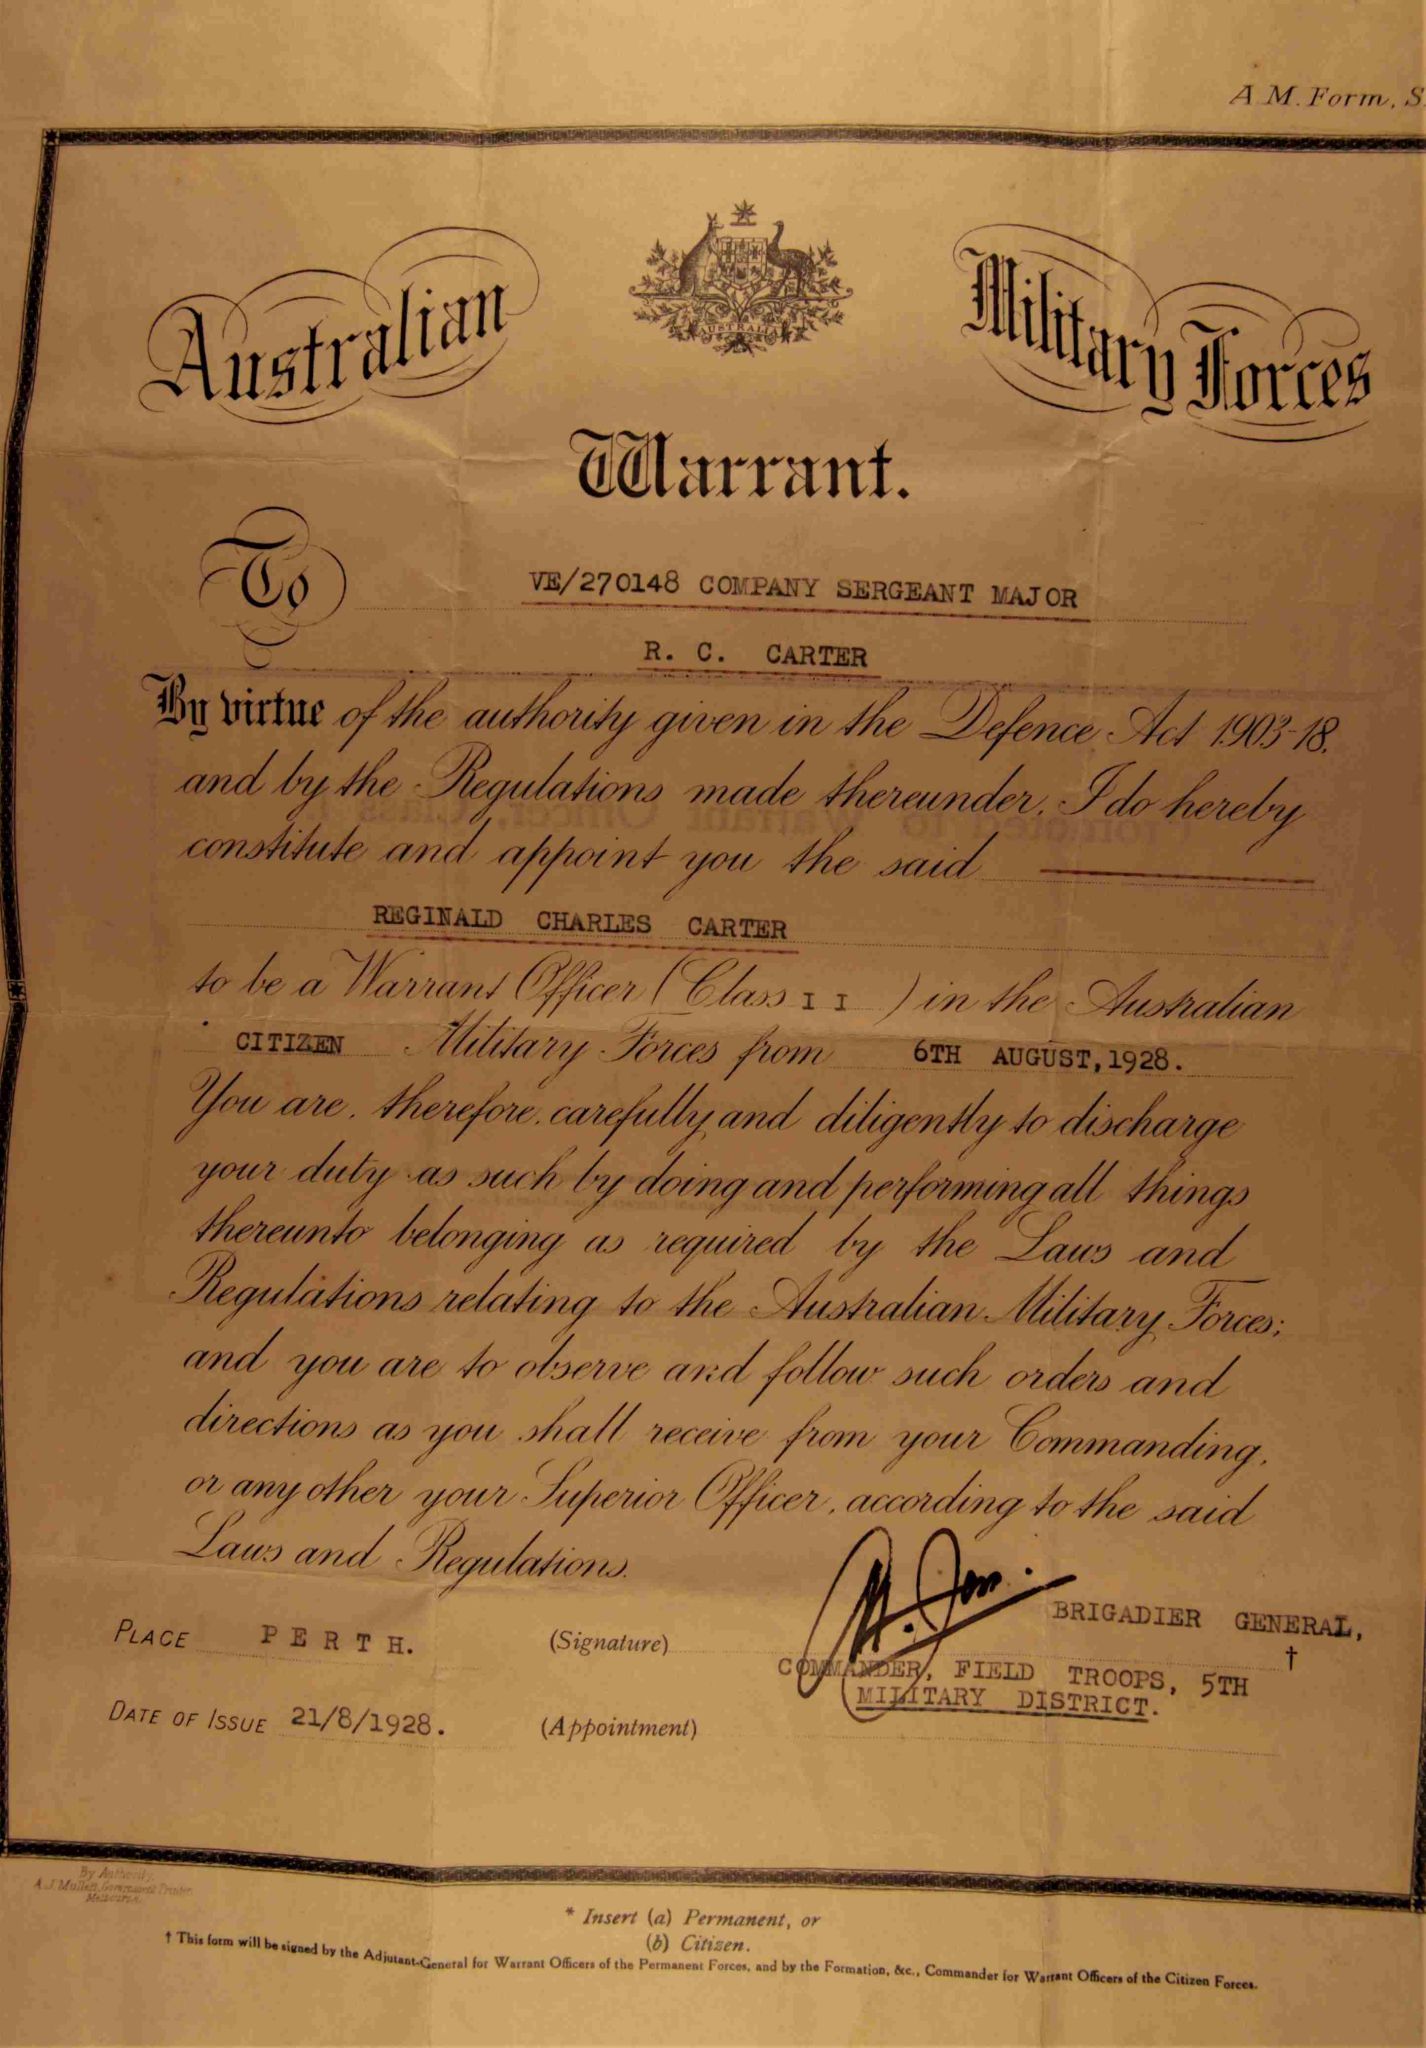 A.M. Form, S.
AUSTRALIA
Australian Military Forces
Warrant.
To
VE/270148 COMPANY SERGEANT MAJOR
R. C. CARTER
By virtue of the authority given in the Defence Act 1903-18.
and by the Regulations made thereunder, I do hereby
constitute and appoint you the said
REGINALD CHARLES CARTER
to be a Warrant Officer (Class II) in the Australian
CITIZEN Military Forces from 6TH AUGUST, 1928.
You are, therefore, carefully and diligently to discharge
your duty as such by doing and performing all things
thereunto belonging as required by the Laws and
Regulations relating to the Australian Military Forces;
and you are to observe and follow such orders and
directions as you shall receive from your Commanding,
or any other your Superior Officer, according to the said
Laws and Regulations.
PLACE PERTH. (Signature) BRIGADIER GENERAL,
COMMANDER, FIELD TROOPS, 5TH †
MILITARY DISTRICT.
DATE OF ISSUE 21/8/1928. (Appointment)
By Authority:
A. J. Mullett, Government Printer,
Melbourne.
* Insert (a) Permanent, or
(b) Citizen.
† This form will be signed by the Adjutant-General for Warrant Officers of the Permanent Forces, and by the Formation, &c., Commander for Warrant Officers of the Citizen Forces.